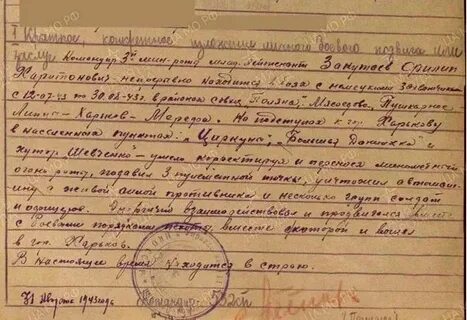 I Краткое, конкретное изложение личного боевого подвига или
заслуг Командир 3й мин. роты млад. лейтенант Закутаев Филип
Харитонович непрерывно находится в боях с немецкими захватчиками
с 12-07-43 по 30.08-43г в районах Поляна, Мясоедово, Пушкарное,
Харьков - Мерефа. На подступах к гор. Харькову
в населенных пунктах: "Циркуны", Большая Даниловка" и
хутор "Шевченко" - умело корректируя и перенося минометный
огонь роты, подавил 3 пулеметных точки, уничтожил автомашину
с живой силой противника и несколько групп солдат
и офицеров. взаимодействовал и продвигался вместе
с боевыми порядками пехоты, вместе с которой и вошел
в гор. Харьков.
В настоящее время находится в строю.
31 Августа 1943 года Командир